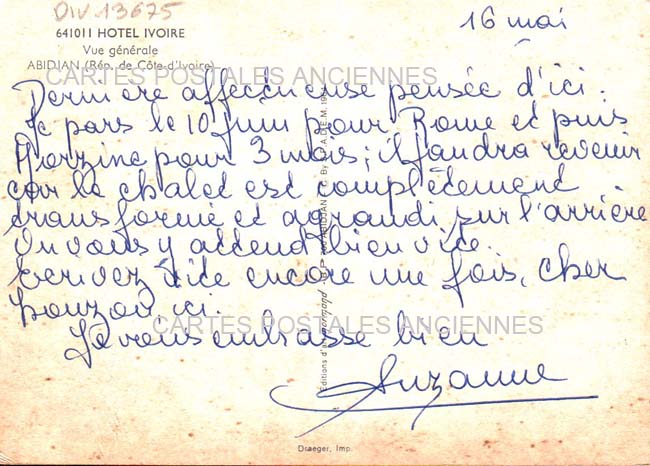 DIV 13675
16 mai
641011 HOTEL IVOIRE
Vue générale
ABIDJAN (Rép. de Côte-d'Ivoire)
CARTES POSTALES ANCIENNES
Dernière affectueuse pensée d'ici.
Je pars le 10 juin pour Rome et puis
Morzine pour 3 mois; il faudra revenir
car le chalet est complètement
transformé et agrandi sur l'arrière
On vous y attend bien vite.
Ecrivez vite encore une fois, cher
ici.
CARTES POSTALES ANCIENNES
Je vous embrasse bien
Suzanne
Editions d'art
ABIDJAN
Draeger, Imp.